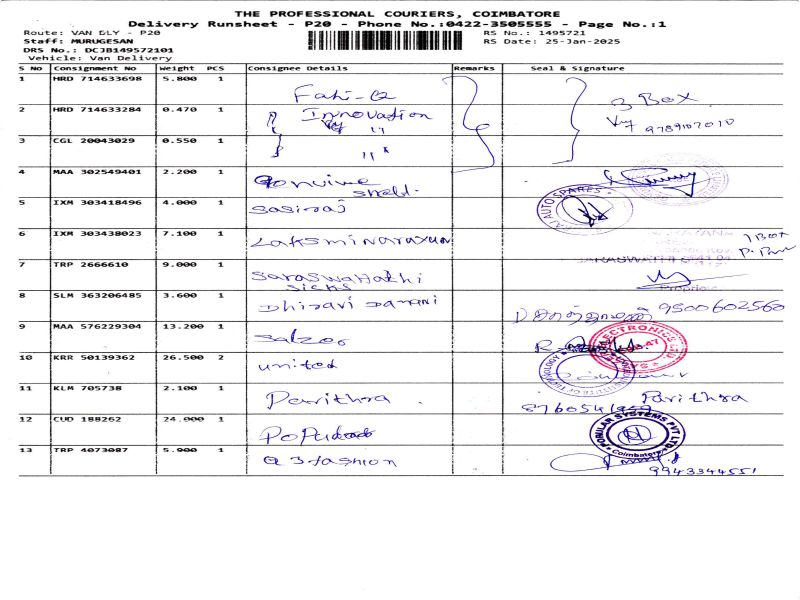 THE PROFESSIONAL COURIERS, COIMBATORE
Delivery Runsheet - P20 - Phone No.:0422-3505555 - Page No.:1
Route: VAN DLY - P20
RS No.: 1495721
Staff: MURUGESAN
RS Date: 25-Jan-2025
DRS No.: DCJB149572101
Vehicle: Van Delivery
S No Consignment No Weight PCS Consignee Details Remarks Seal & Signature
1 HRD 714633698 5.800 1 Fahi-Q
2 HRD 714633284 0.470 1 Innovation 3 Box
9789107010
3 CGL 20043029 0.550 1 "
4 MAA 302549401 2.200 1 Genuine sheld.
5 IXM 303418496 4.000 1 Sasiraj AUTO SPARES
6 IXM 303438023 7.100 1 Laksminarayun 1 Box
7 TRP 2666610 9.000 1 Saraswathi
8 SLM 363206485 3.600 1 9500602560
9 MAA 576229304 13.200 1 Salzer
10 KRR 50139362 26.500 2 united
11 KLM 705738 2.100 1 Pavithra Pavithra
12 CUD 188262 24.000 1 POPULAR SYSTEMS PVT LTD Coimbatore
13 TRP 4073087 5.900 1 Q3 fashion
9943344551